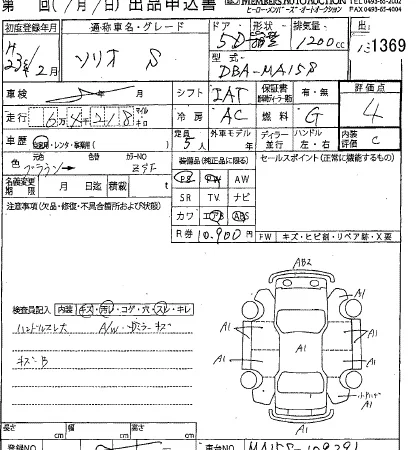 第 回( / 月 / 日) 出品申込書 MEMBERS AUTO AUCTION
ヒーローメンバーズ・オートオークション FAX 0493-65-4004
初度登録年月 通称車名・グレード ドア・形状 排気量 出
H 23年2月 ソリオ S 5D 1200cc 1369
型式
DBA-MA15S
車検 年 月 シフト IAT 保証書 有・無 評価点
走行 6万4千218 マイル キロ 冷房 AC 燃料 G 4
車歴 自家用・レンタ・事業用( ) 定員 5人 外車モデル ディーラー 並行 ハンドル 左・右 内装評価 C
色 元色 ブラウン 色替 カラーNO ZSE 装備品(純正品に限る) セールスポイント(正常に機能するもの)
名義変更期限 月 日迄 積載 t PS PW AW
SR TV ナビ
注意事項(欠品・修復・不具合箇所および状態) カワ エアB ABS
R券 10,900円
FW キズ・ヒビ割・リペア跡・X要
AB2
検査員記入 内装 キズ・汚レ・コゲ・穴・スレ・キレ
ハンドルスレ大 A/W・ドミラーキズ
キズB
A1 A1
A1 A1 A1
A1 A1
A1
A1
長さ cm 幅 cm 高さ cm
登録NO 車台NO MA15S-109291